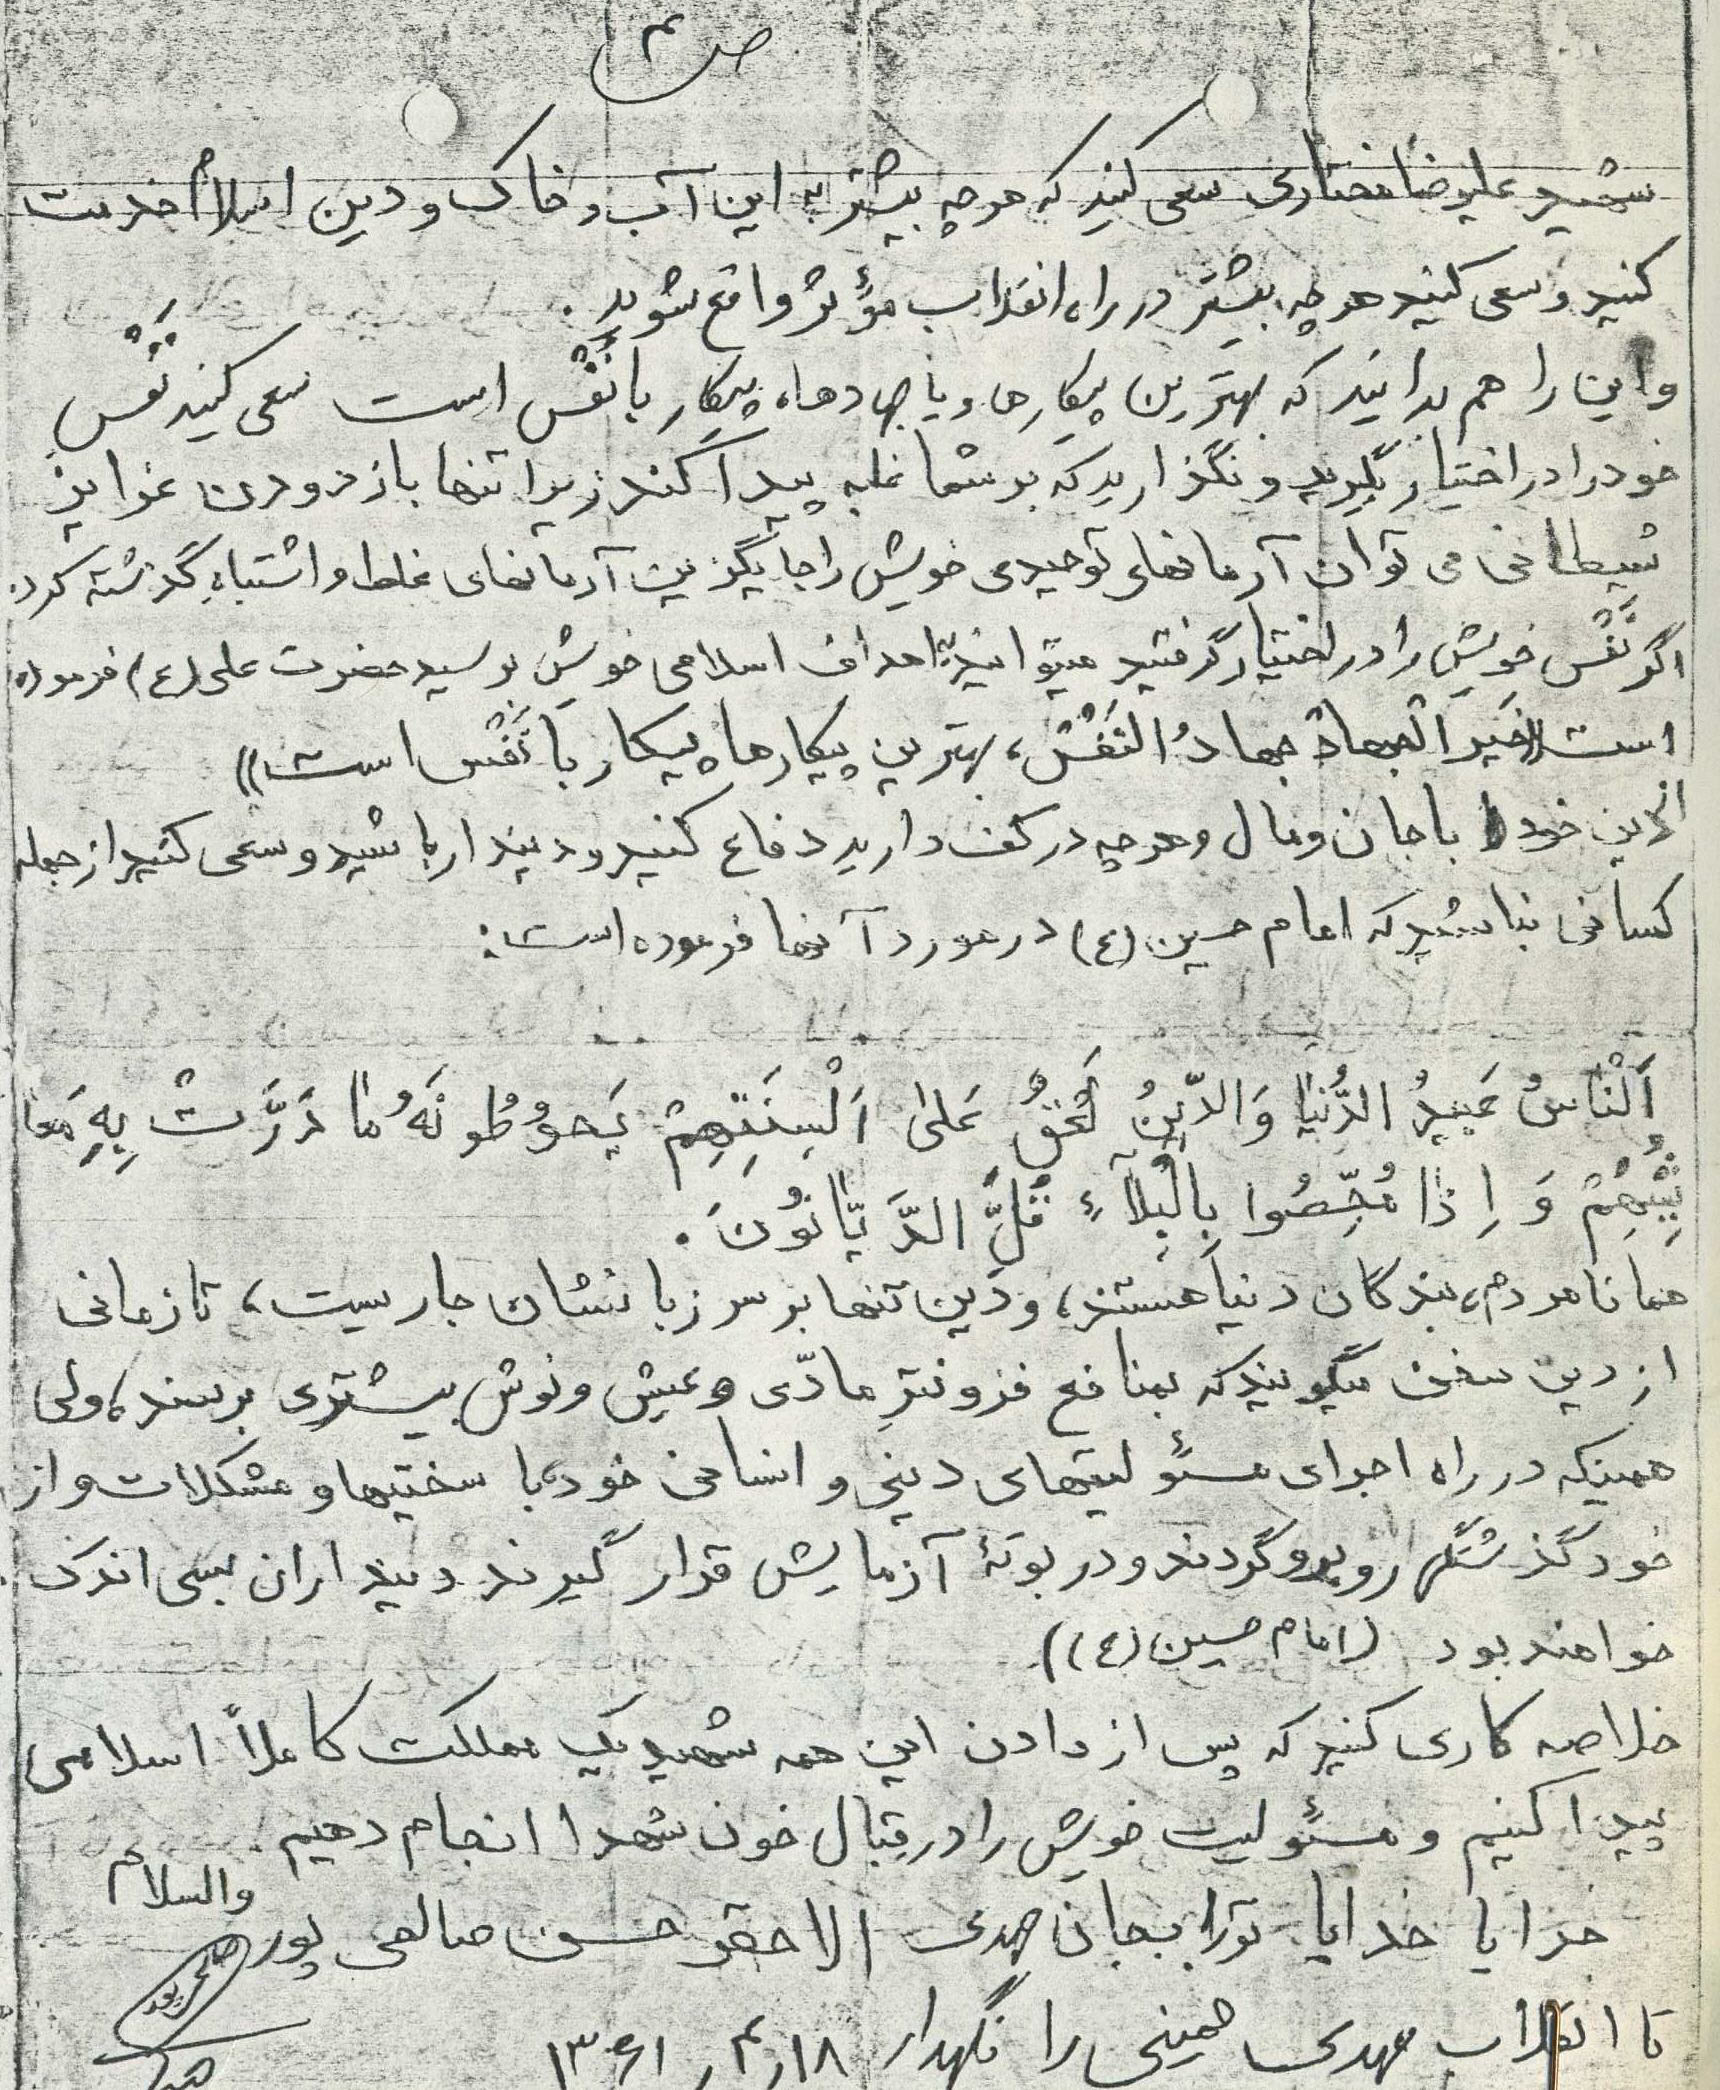 ص ۴
شهید علیرضا مختاری سعی کنید که هر چه بیشتر به این آب و خاک و دین اسلام خدمت
کنید و سعی کنید هر چه بیشتر در راه انقلاب مؤثر واقع شوید.
و این را هم بدانید که بهترین پیکارها و یا جهادها، پیکار با نَفْس است سعی کنید نَفْس
خود را در اختیار بگیرید و نگذارید که بر شما غلبه پیدا کند زیرا تنها با زدودن غرایز
شیطانی می توان آرمانهای توحیدی خویش را جایگزین آرمانهای غلط و اشتباه گذشته کرد.
اگر نَفْس خویش را در اختیار گرفتید میتوانید به اهداف اسلامی خویش برسید حضرت علی (ع) فرموده
است «خَیرَ الْجهاد جهادُ النَفْس، بهترین پیکارها پیکار با نَفْس است»
از دین خود با جان و مال و هر چه در کف دارید دفاع کنید و دیندار باشید و سعی کنید از جمله
کسانی نباشید که امام حسین (ع) در مورد آنها فرموده است:
اَلْنّاسُ عَبیدُ الدُّنیا وَ الدّینُ لَعْقٌ عَلیٰ اَلْسِنَتِهِمْ یَحوُطُونَهُ ما دَرَّتْ بِهِ مَعا
یِشُهُمْ وَ اِذا مُحِّصُوا بِالْبَلآءِ قَلَّ الدَّیّانُونَ.
همانا مردم، بندگان دنیا هستند، و دین تنها بر سر زبانشان جاریست، تا زمانی
از دین سخن میگویند که بمنافع فزونترِ مادّی و عیش و نوش بیشتری برسند، ولی
همینکه در راه اجرای مسئولیتهای دینی و انسانی خود، با سختیها و مشکلات و از
خود گذشتگیها روبرو گردند و در بوتهٔ آزمایش قرار گیرند دینداران بسی اندک
خواهند بود (امام حسین (ع))
خلاصه کاری کنید که پس از دادن این همه شهید یک مملکت کاملاً اسلامی
پیدا کنیم و مسئولیت خویش را در قبال خون شهدا انجام دهیم.
والسلام
خدایا خدایا تو را بجان مهدی الاحقر حسن صالحی پور
صالحی پور
تا انقلاب مهدی خمینی را نگهدار ۱۸ر۴ر۱۳۶۱